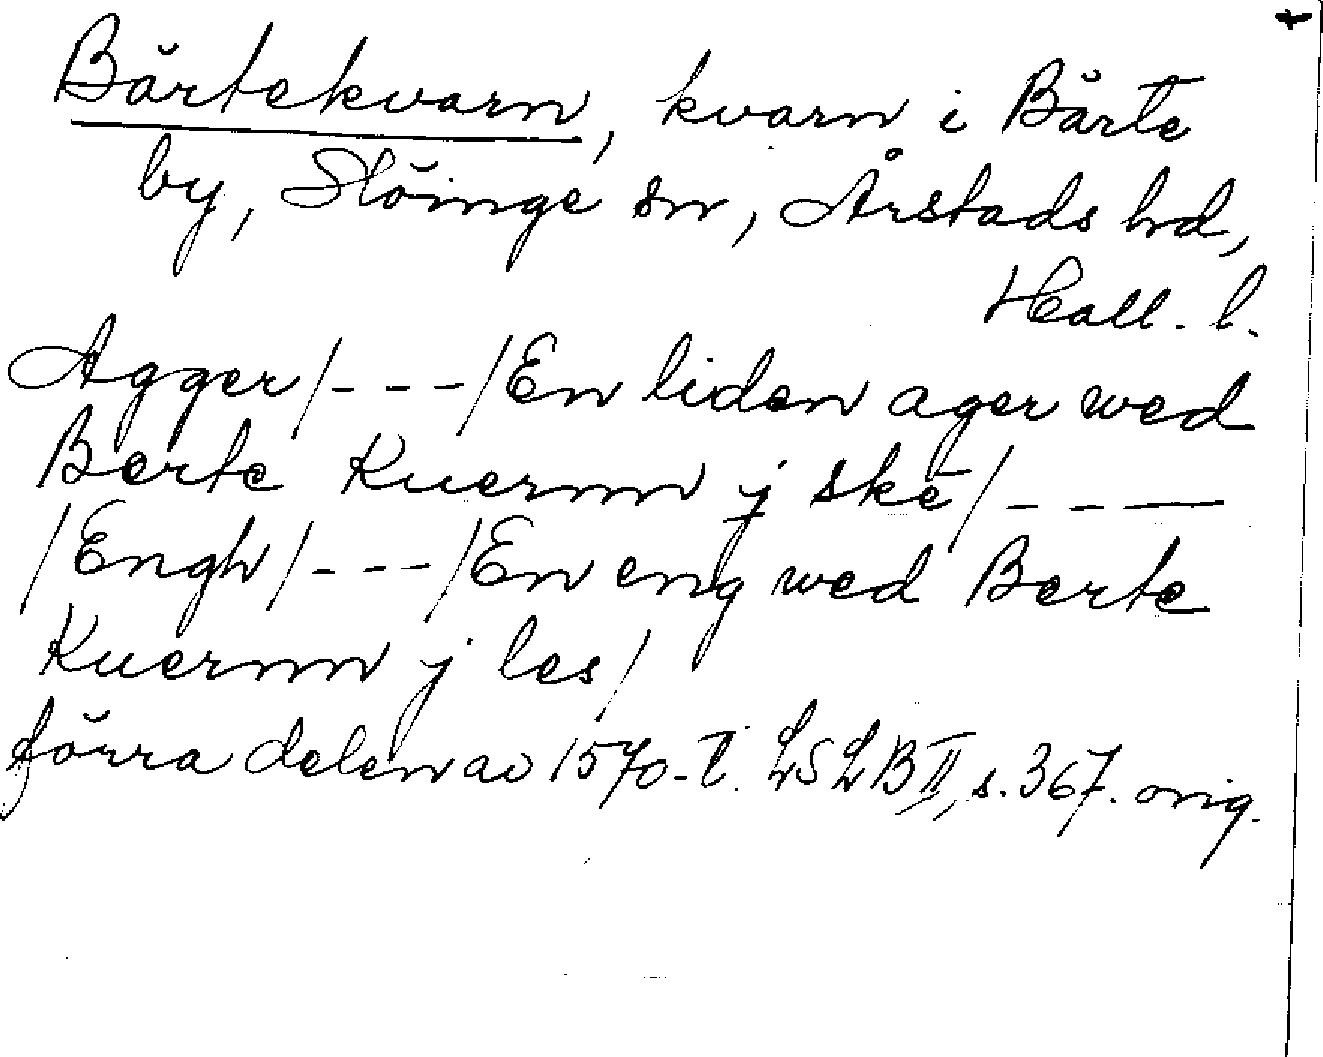 Bärtekvarn, kvarn i Bärte
by, Slöinge sn, Årstads hd,
Hall. l.
Agger/---/En liden ager wed
Berte Kuernn j ske/---
/Engh/---/En eng wed Berte
Kuernn j les/
förra delen av 1570-t. LSLB II, s. 367. orig.